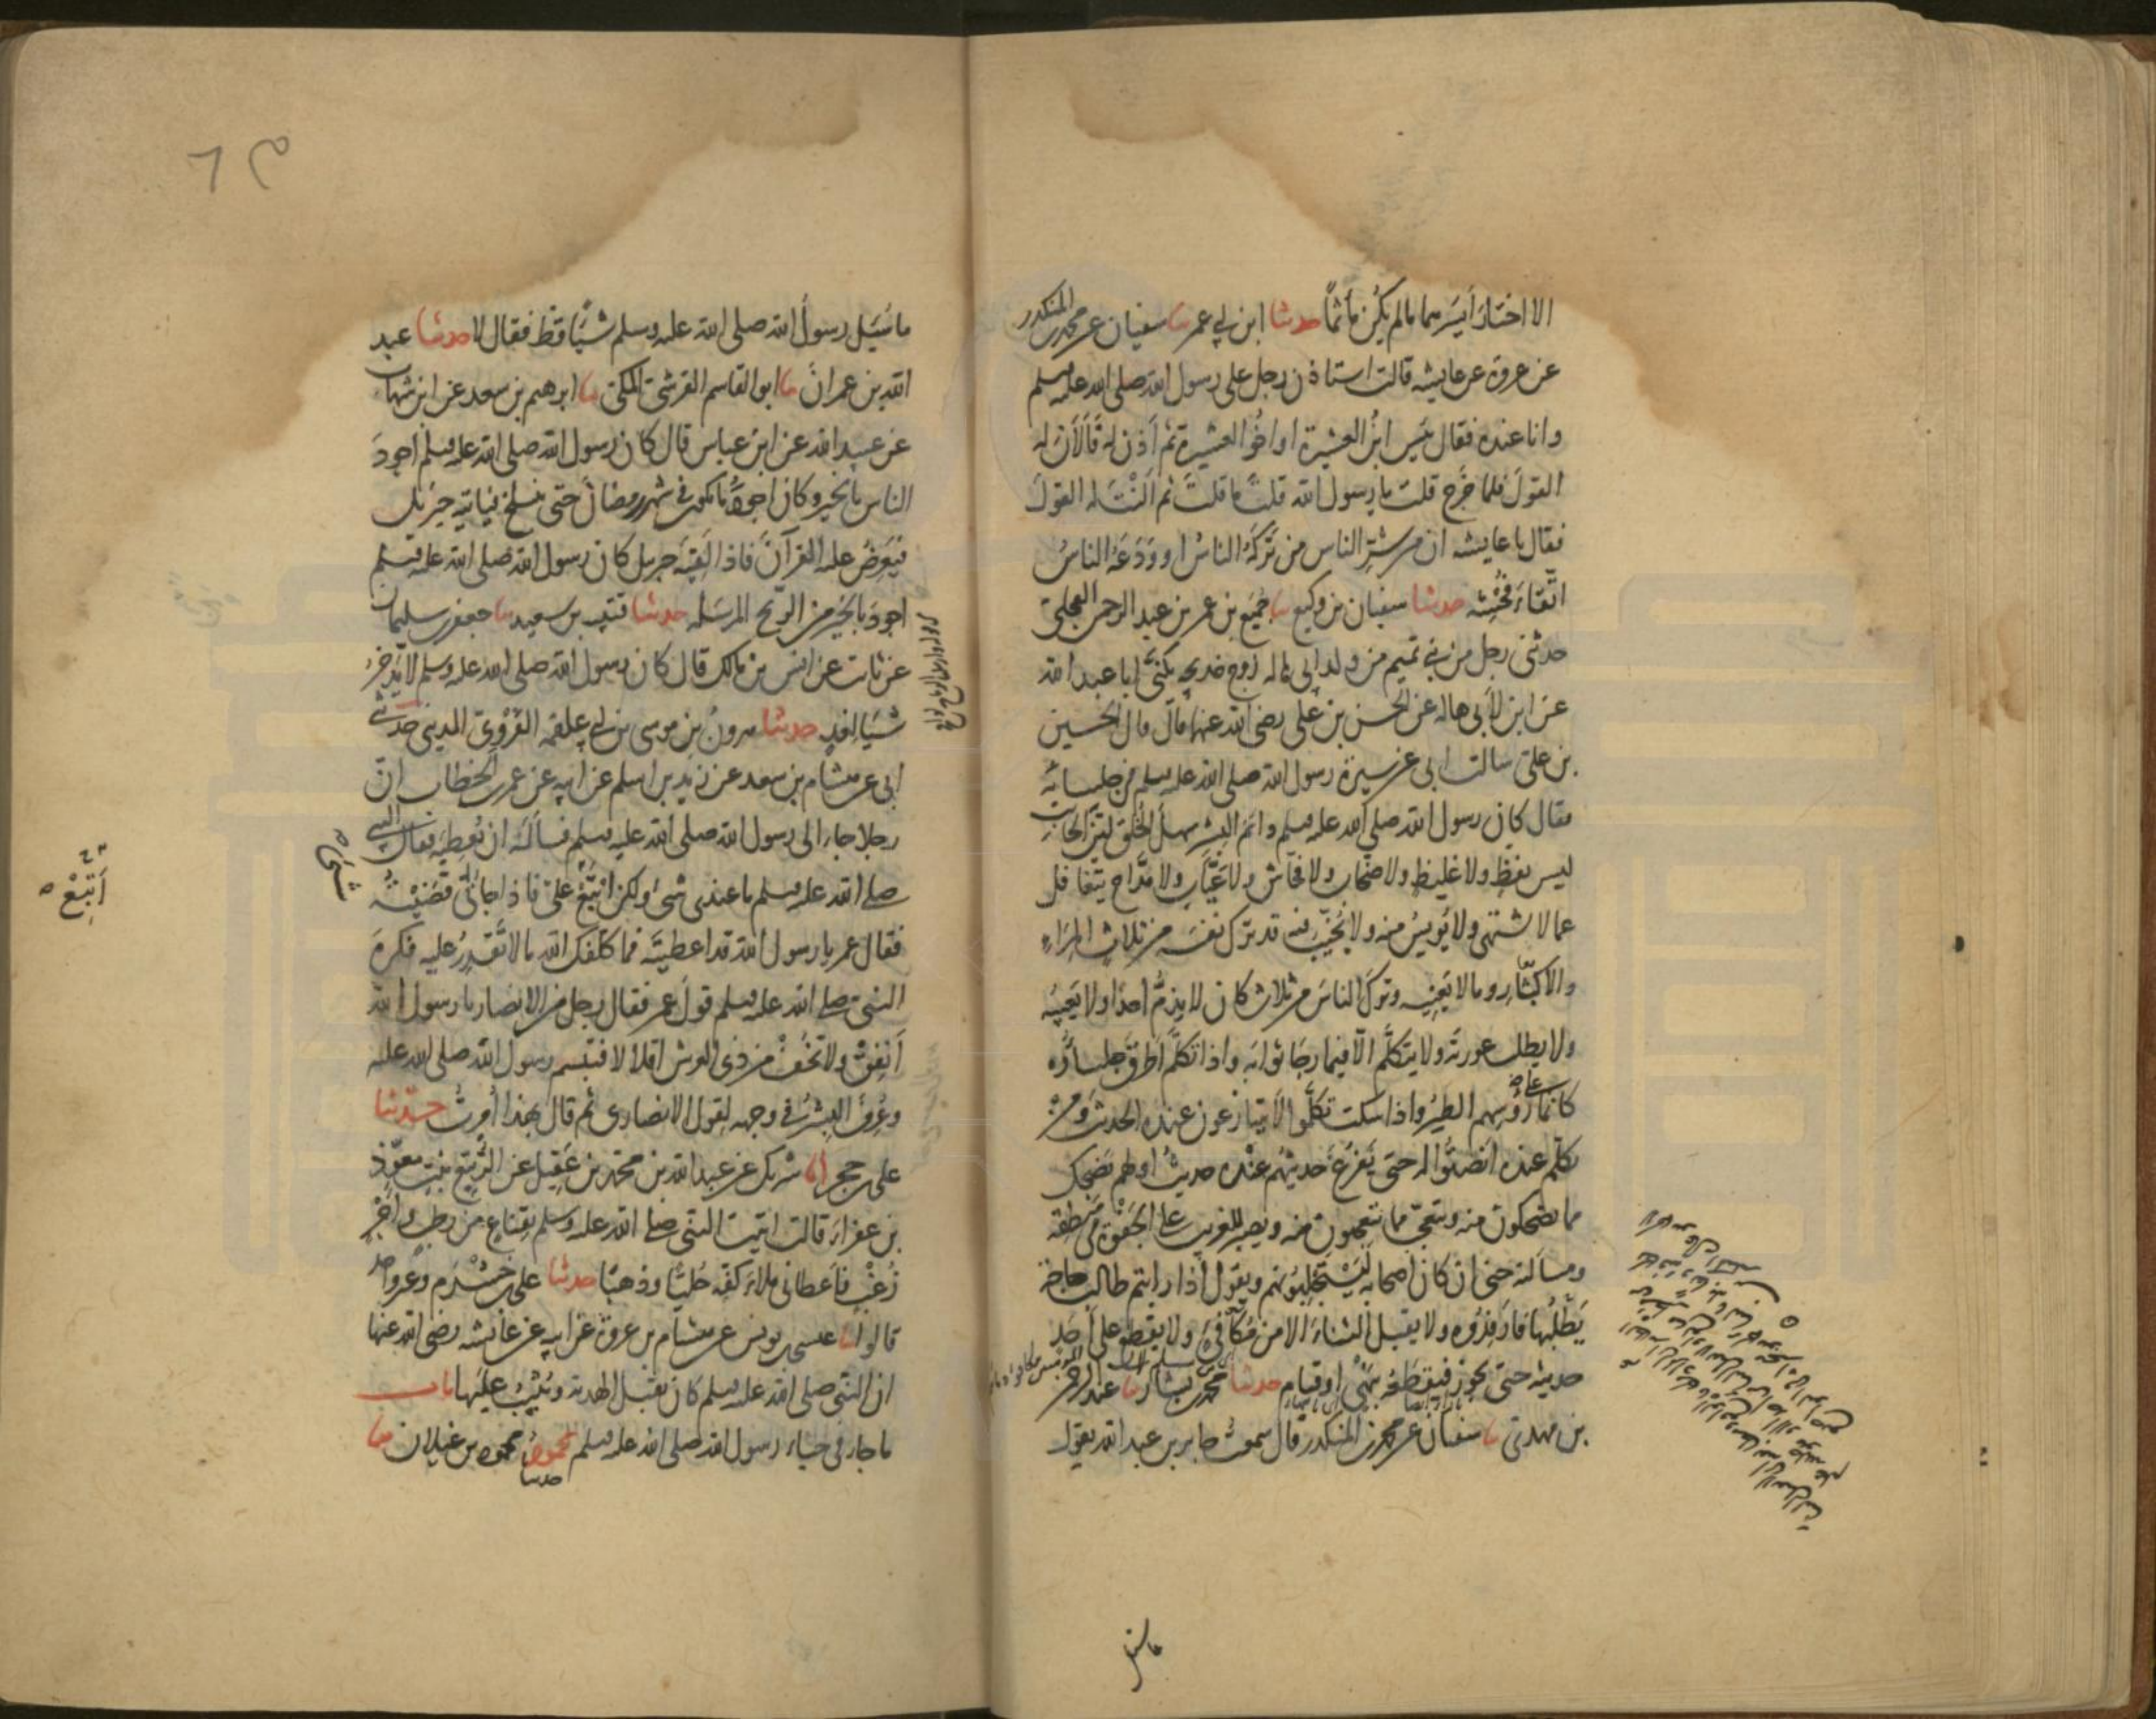 الا اختار أيسرهما مالم يكن مأثماً حدثنا ابن ابي عمر نا سفيان عن محمد بن المنكدر
عن عروة عن عايشه قالت استاذن رجل على رسول الله صلى الله عليه وسلم
وانا عنده فقال بئس ابنُ العشيرة او اخُو العشيرة ثم أذن له فَأَلاَنَ له
القولَ فلما خَرَج قلت يا رسول الله قلتَ ما قلتَ ثم اَلَنْتَ له القولَ
فقال يا عايشه ان من شرِّ الناس من تَرَكَهُ الناسُ او وَدَعَهُ الناسُ
اتّقاءَ فُحْشِه حدثنا سفيان بن وكيع نا جُمَيع بن عمر بن عبد الرحمن العجلىّ
حدثنى رجل من بنى تميم من ولد ابى هاله زوج خديجه يكنىّ ابا عبد الله
عن ابن لأبى هاله عن الحسن بن على رضى الله عنهما قال قال الحسين
بن علىّ سالت ابى عن سيرة رسول الله صلى الله عليه وسلم فى جلسائه
فقال كان رسول الله صلى الله عليه وسلم دائم البِشر سهلَ الخُلق ليّن الجانب
ليس بفظٍ ولا غليظٍ ولا صخّاب ولا فحّاش ولا عَيّاب ولا مدّاح يتغافل
عما لا يشتهى ولا يُويِسُ منه ولا يُخيّبُ فيه قد ترك نفسَه من ثلاث المِرَاءِ
والاكثار وما لا يَعنِيه وتَركَ الناسَ من ثلاث كان لا يذمُّ احدًا ولا يَعِيبُه
ولا يطلب عورتَه ولا يتكلَّم الاّ فيما رجَا ثوابَه واذا تكلَّم اَطرَقَ جلساؤُه
كانّما على رؤُسِهم الطيرُ واذا سكت تكلَّموا لا يتنازعون عنده الحديث ومن
تكلّم عنده اَنصَتُوا له حتى يَفرُغَ حديثُهم عنده حديثُ اولهم يَضحك
مما يضحكون منه ويتعجّب مما يتعجبون منه ويصبر للغريب على الجَفْوَة فى مَنطِقِه
ومسألته حتى ان كان اصحابه لَيَسْتَجْلِبُونهم ويقول اذا رايتم طالب حاجة
يَطلُبها فارفِدُوه ولا يقبل الثناءَ الا من مُكَافِئٍ ولا يقطع على اَحدٍ
حديثه حتى يجوز فيقطَعَه بنَهْىٍ او قيام حدثنا محمد بن بشار نا عبد الرحمن
بن مهدىّ نا سفيان عن محمد بن المنكدر قال سمعتُ جابر بن عبد الله يقول
ما سُئِل
ما سُئِيل رسولُ الله صلى الله عليه وسلم شيئًا قط فقال لا حدثنا عبد
الله بن عمران نا ابو القاسم القرشىّ المكىّ نا ابرهيم بن سعد عن ابن شهاب
عن عبيد الله عن ابن عباس قال كان رسول الله صلى الله عليه وسلم اجودَ
الناس بالخير وكان اجودُ ما يكون فى شهر رمضانَ حتى ينسلخ فياتيه جبريل
فيَعرِضُ عليه القرآنَ فاذا لَقِيَه جبريل كان رسول الله صلى الله عليه وسلم
اجودَ بالخير من الرّيح المرسَله حدثنا قتيبه بن سعيد نا جعفر بن سليمان
عن ثابت عن انس بن مالك قال كان رسول الله صلى الله عليه وسلم لا يَدّخِرُ
شيئا لغدٍ حدثنا هرون بن موسى بن ابى علقمه الفَرْوِىّ المدينى حدثنى
ابى عن هشام بن سعد عن زيد بن اسلم عن ابيه عن عمر بن الخطاب انّ
رجلا جاء الى رسول الله صلى الله عليه وسلم فسألَه ان يُعطِيَه فقال النبى
صلى الله عليه وسلم ما عندى شىء ولكن ابتَعْ علىّ فاذا جائنى قَضَيْتُه
أَتْبِعْ
فقال عمر يا رسول الله قد اعطيتَه فما كلّفك الله ما لا تَقدِرُ عليه فكرِهَ
النبىّ صلى الله عليه وسلم قولَ عمر فقال رجل من الانصار يا رسول الله
أَنفِقْ ولا تَخَفْ من ذى العرش اقلالا فتبسم رسول الله صلى الله عليه
وعُرِفَ البِشرُ فى وجهه لقول الانصارى ثم قال بهذا أُمِرتُ حدثنا
على بن حجر انا شريك عن عبد الله بن محمد بن عَقِيل عن الرُّبَيّع بنت معوّذ
بن عفراءَ قالت اتيت النبى صلى الله عليه وسلم بقِناع من رطب وأجْرٍ
زُغْبٍ فاَعطانى مِلاءَ كفّه حُلِيًّا وذهبًا حدثنا على بن خَشْرَم وغير واحد
قالوا انا عيسى بن يونس عن هشام بن عروة عن ابيه عن عائشه رضى الله عنها
ان النبّى صلى الله عليه وسلم كان يقبل الهدية ويُثِيبُ عليها باب
ما جاء فى حياء رسول الله صلى الله عليه وسلم حدثنا محمود بن غيلان نا